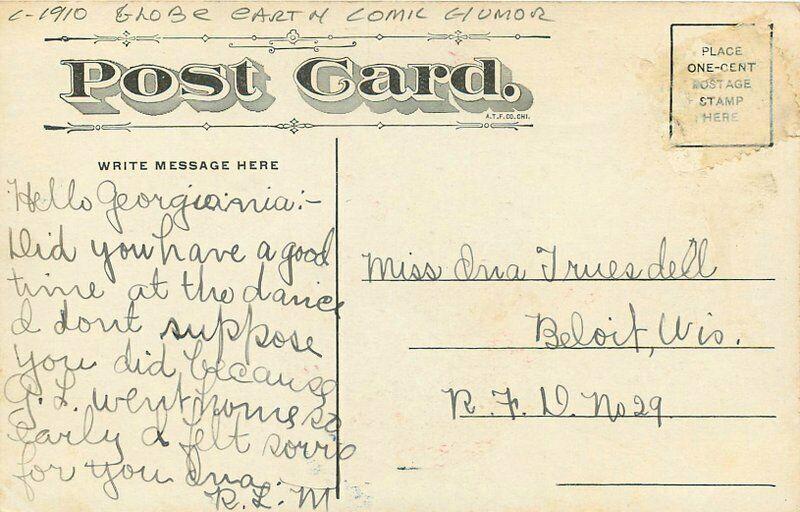 C-1910 GLOBE EARTH COMIC HUMOR
Post Card.
A.T.F.CO.CHI.
PLACE
ONE-CENT
POSTAGE
STAMP
HERE
WRITE MESSAGE HERE
Hello Georgiania:-
Did you have a good
time at the dance
I dont suppose
you did because
G. L. went home so
early I felt sorrie
for you Ina.
R. L. M
Miss Ina Truesdell
Beloit, Wis.
R. F. D. No 29.